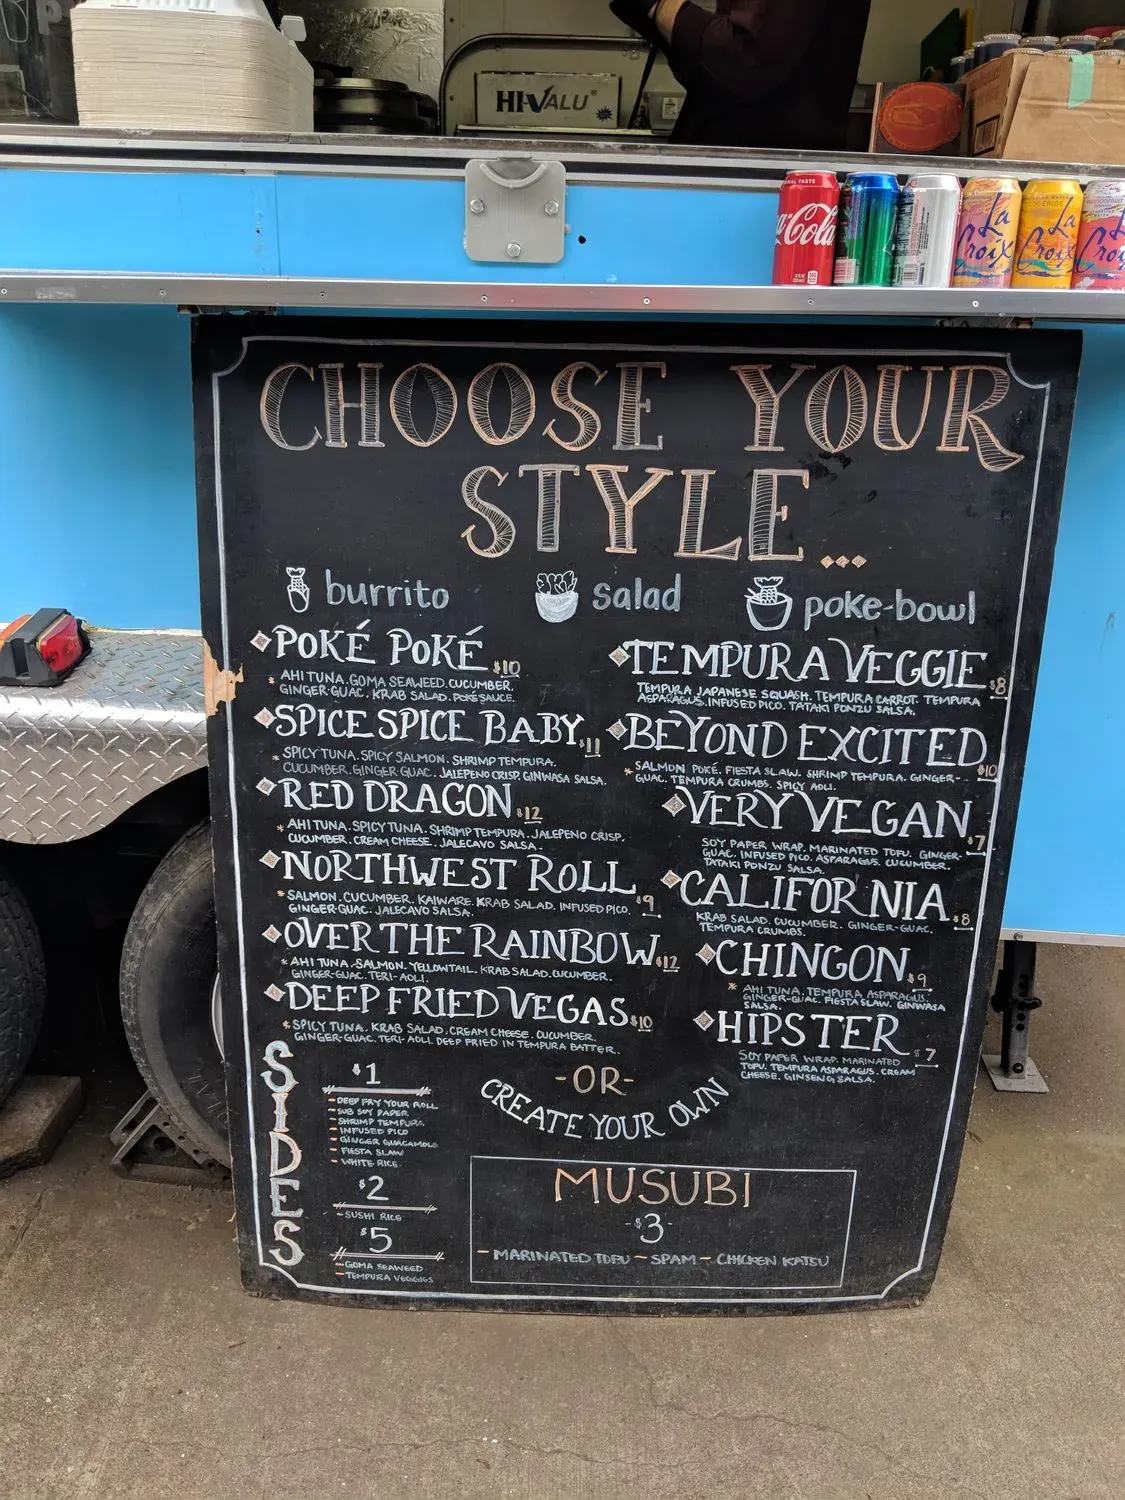 HI-VALU
ORIGINAL TASTE
Coca-Cola
La Croix
TANGERINE
La Croix
La Croix
CHOOSE YOUR
STYLE...
burrito
salad
poke-bowl
POKÉ POKÉ $10
* AHI TUNA. GOMA SEAWEED. CUCUMBER.
GINGER-GUAC. KRAB SALAD. POKÉ SAUCE.
SPICE SPICE BABY $11
* SPICY TUNA. SPICY SALMON. SHRIMP TEMPURA.
CUCUMBER. GINGER GUAC. JALEPENO CRISP. GINWASA SALSA.
RED DRAGON $12
* AHI TUNA. SPICY TUNA. SHRIMP TEMPURA. JALEPENO CRISP.
CUCUMBER. CREAM CHEESE. JALECAVO SALSA.
NORTHWEST ROLL $9
* SALMON. CUCUMBER. KAIWARE. KRAB SALAD. INFUSED PICO.
GINGER-GUAC. JALECAVO SALSA.
OVER THE RAINBOW $12
* AHI TUNA. SALMON. YELLOWTAIL. KRAB SALAD. CUCUMBER.
GINGER-GUAC. TERI-AOLI.
DEEP FRIED VEGAS $10
* SPICY TUNA. KRAB SALAD. CREAM CHEESE. CUCUMBER.
GINGER-GUAC. TERI-AOLI. DEEP FRIED IN TEMPURA BATTER.
TEMPURA VEGGIE $8
TEMPURA JAPANESE SQUASH. TEMPURA CARROT. TEMPURA
ASPARAGUS. INFUSED PICO. TATAKI PONZU SALSA.
BEYOND EXCITED $10
* SALMON POKÉ. FIESTA SLAW. SHRIMP TEMPURA. GINGER-
GUAC. TEMPURA CRUMBS. SPICY AOLI.
VERY VEGAN $7
SOY PAPER WRAP. MARINATED TOFU. GINGER-
GUAC. INFUSED PICO. ASPARAGUS. CUCUMBER.
TATAKI PONZU SALSA.
CALIFORNIA $8
KRAB SALAD. CUCUMBER. GINGER-GUAC.
TEMPURA CRUMBS.
CHINGON $9
* AHI TUNA. TEMPURA ASPARAGUS.
GINGER-GUAC. FIESTA SLAW. GINWASA
SALSA.
HIPSTER $7
SOY PAPER WRAP. MARINATED
TOFU. TEMPURA ASPARAGUS. CREAM
CHEESE. GINSENG SALSA.
-OR-
CREATE YOUR OWN
SIDES
$1
- DEEP FRY YOUR ROLL
- SUB SOY PAPER
- SHRIMP TEMPURA
- INFUSED PICO
- GINGER GUACAMOLE
- FIESTA SLAW
- WHITE RICE
$2
- SUSHI RICE
$5
- GOMA SEAWEED
- TEMPURA VEGGIES
MUSUBI
-$3-
- MARINATED TOFU - SPAM - CHICKEN KATSU